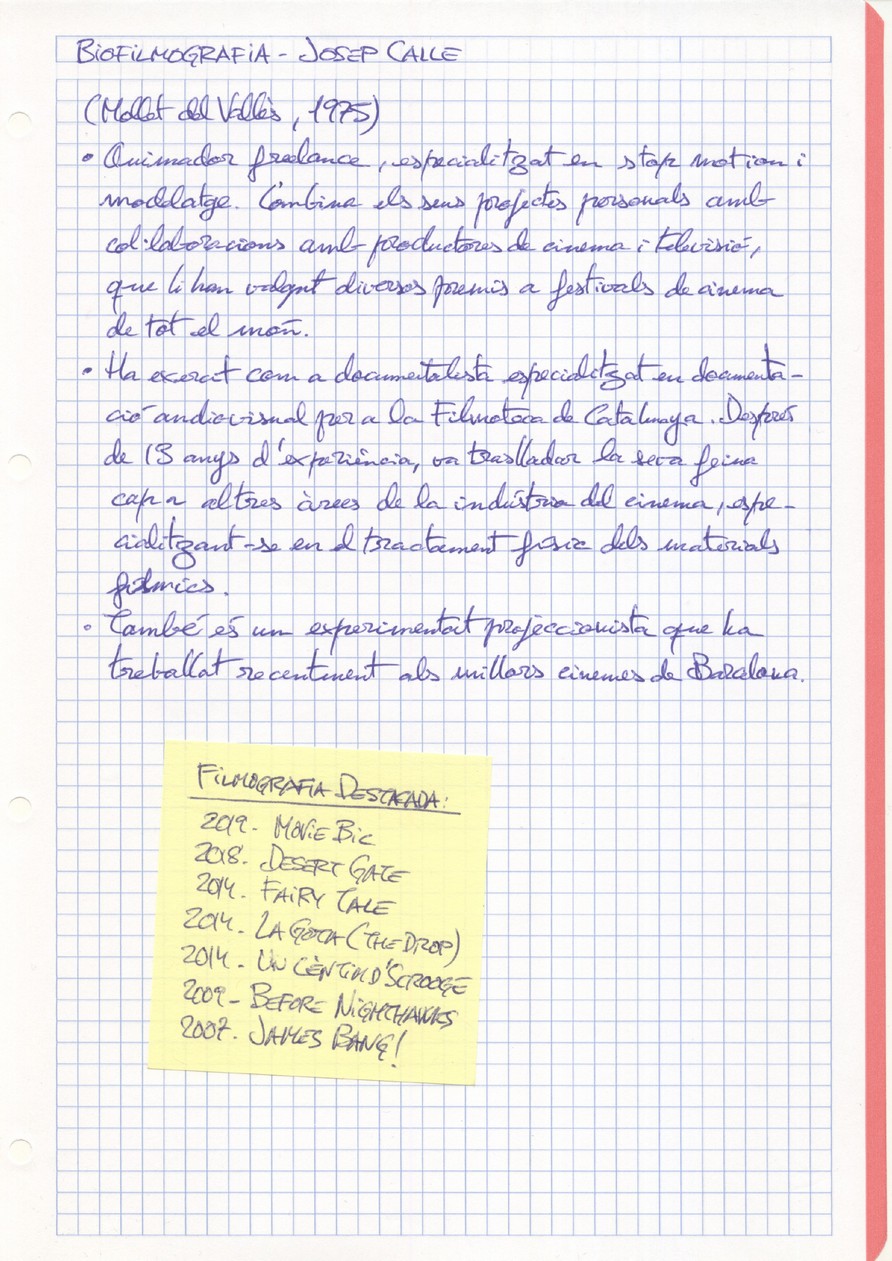 BIOFILMOGRAFIA - JOSEP CALLE
(Mollet del Vallès, 1975)
• Animador freelance, especialitzat en stop motion i
modelatge. Combina els seus projectes personals amb
col·laboracions amb productores de cinema i televisió,
que li han valgut diversos premis a festivals de cinema
de tot el món.
• Ha exercit com a documentalista especialitzat en documenta-
ció audiovisual per a la Filmoteca de Catalunya. Després
de 13 anys d'experiència, va traslladar la seva feina
cap a altres àrees de la indústria del cinema, espe-
cialitzant-se en el tractament físic dels materials
fílmics.
• També és un experimentat projeccionista que ha
treballat recentment als millors cinemes de Barcelona.
FILMOGRAFIA DESTACADA:
2019. MOVIE BIC
2018. DESERT GATE
2014. FAIRY TALE
2014. LA GOTA (THE DROP)
2014. UN CÈNTIM D'SCROOGE
2009 - BEFORE NIGHTHAWKS
2007. JAMES BANG!